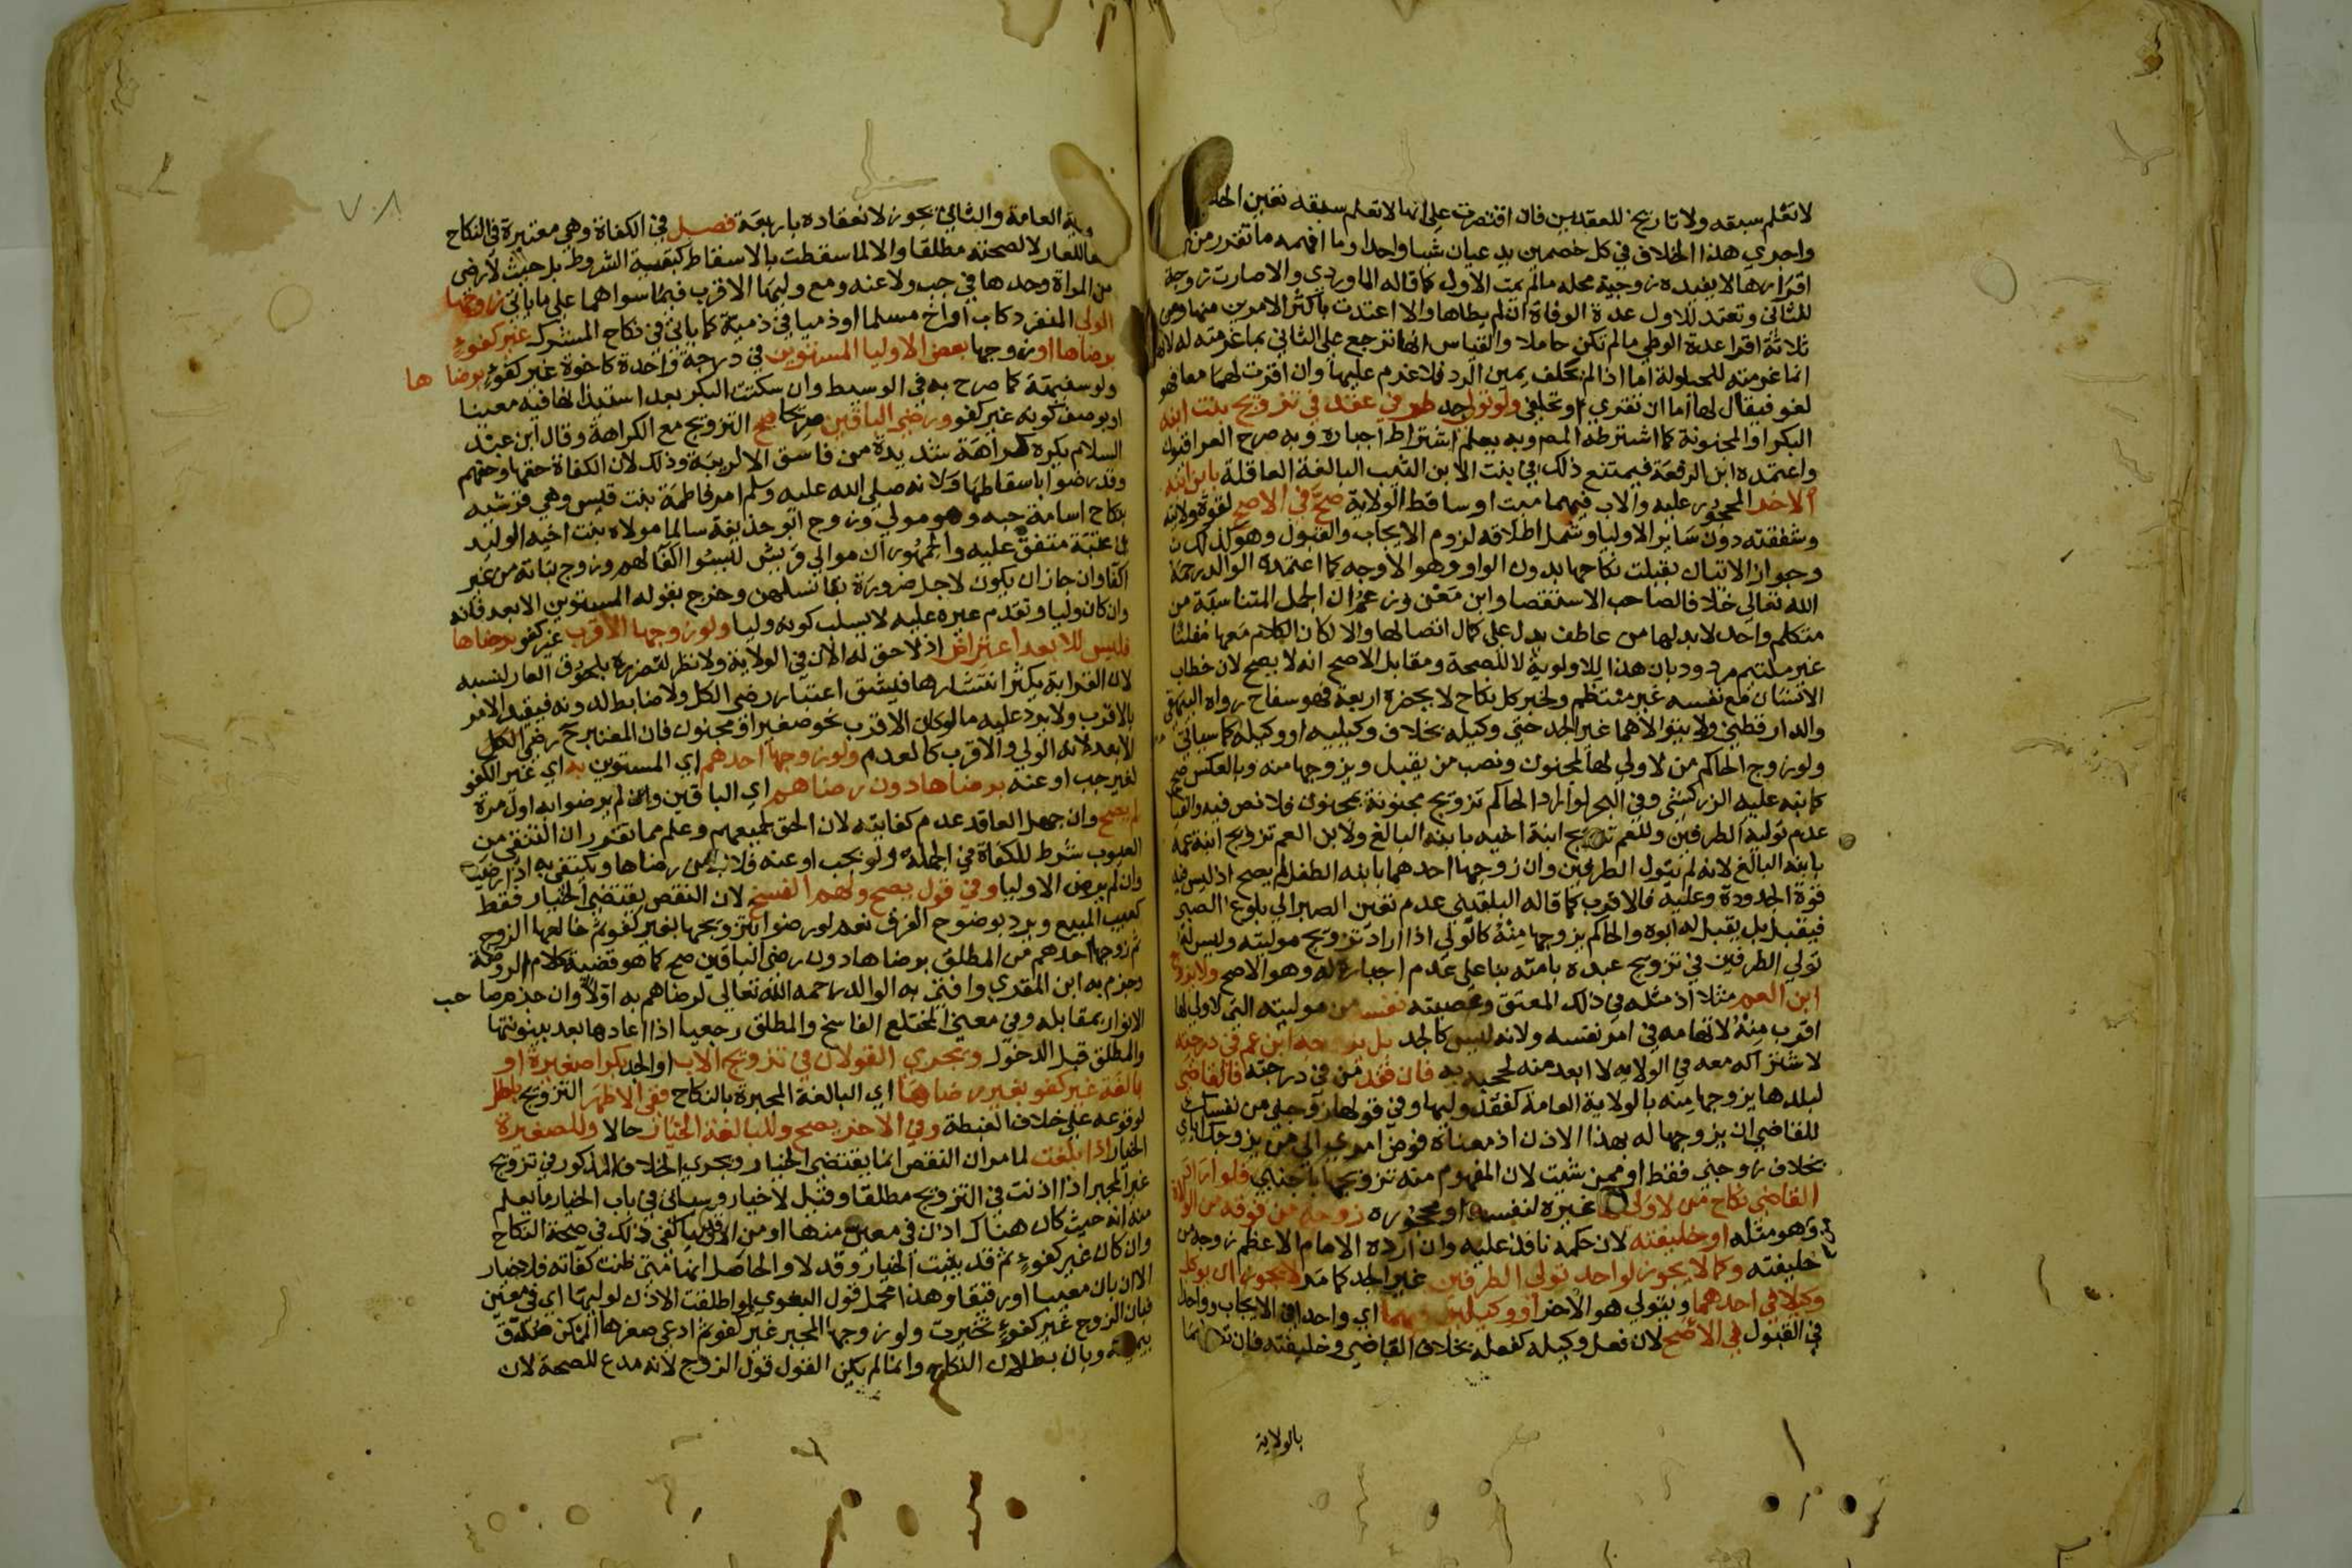 لا تعلم سبقه ولا تاريخ للعقدين فان اقتصرت على انها لا تعلم سبقه تعين الحلف
واجري هذا الخلاف في كل خصمين يدعيان شيا واحدا وما افهمه ما تقرر من
اقرارها لا يفيده زوجية محله ما لم يمت الاول كما قاله الماوردي والا صارت زوجة
للثاني وتعتد للاول عدة الوفاة ان لم يطاها والا اعتدت باكثر الامرين منها ومن
ثلاثة اقرا عدة الوطي ما لم تكن حاملا والقياس انها ترجع على الثاني بما غرمته له لانها
انما غرمته للحيلولة اما اذا لم تحلف يمين الرد فلا غرم عليها وان اقرت لهما معا فهو
لغو فيقال لها اما ان تقري او تحلفي ولو تولى جد طرفي عقد في تزويج بنت ابنه
البكر او المجنونة كما اشترطه المص وبه يعلم اشتراط اجباره وبه صرح العراقيون
واعتمده ابن الرفعة فيمتنع ذلك في بنت الابن الثيب البالغة العاقلة بابن ابنه
الاخر المحجور عليه والاب فيهما ميت او ساقط الولاية صح في الاصح لقوة ولايته
وشفقته دون سائر الاوليا وشمل اطلاقه لزوم الايجاب والقبول وهو كذلك
وجواز الاتيان بقبلت نكاحها بدون الواو وهو الاوجه كما اعتمده الوالد رحمه
الله تعالى خلافا لصاحب الاستقصا وابن معن وزعم ان الجمل المتناسبة من
متكلم واحد لابد لها من عاطف يدل على كمال اتصالها والا لكان الكلام معها مفلتا
غير ملتيم مردود بان هذا للاولوية لا للصحة ومقابل الاصح انه لا يصح لان خطاب
الانسان مع نفسه غير منتظم ولخبر كل نكاح لا يحضره اربعة فهو سفاح رواه البيهقي
والدارقطني ولا يتولاهما غير الجد حتى وكيله بخلاف وكيليه او وكيله كما سياتي
ولو زوج الحاكم من لا ولي لها لمجنون ونصب من يقبل ويزوجها منه وبالعكس صح
كما نبه عليه الزركشي وفي البحر لو اراد الحاكم تزويج مجنونة بمجنون فلا نص فيه والقياس
عدم تولية الطرفين وللعم تزويج ابنة اخيه بابنه البالغ ولابن العم تزويج ابنة عمه
بابنه البالغ لانه لم يتول الطرفين وان زوجها احدهما بابنه الطفل لم يصح اذ ليس فيه
قوة الجدودة وعليه فالاقرب كما قاله البلقيني عدم تعين الصبر الى بلوغ الصبي
فيقبل بل يقبل له ابوه والحاكم يزوجها منه كالولي اذا اراد تزويج موليته وليس له
تولي الطرفين في تزويج عبده بامته بنا على عدم اجباره له وهو الاصح ولا يزوج
ابن العم مثلا اذ مثله في ذلك المعتق وعصبته نفسه من موليته التي لا ولي لها
اقرب منه لاتهامه في امر نفسه ولانه ليس كالجد بل يزوجه ابن عم في درجته
لاشتراكه معه في الولاية لا ابعد منه لحجبه به فان فقد من في درجته فالقاضي
لبلدها يزوجها منه بالولاية العامة كفقد وليها وفي قولها زوجني من نفسك
للقاضي ان يزوجها له بهذا الاذن اذ معناه فوض امري الى من يزوجك اياي
بخلاف زوجني فقط او ممن شيت لان المفهوم منه تزويجها باجنبي فلو اراد
القاضي نكاح من لا ولي لها غيره لنفسه او محجوره زوجه من فوقه من الولاة
وهو مثله او خليفته لان حكمه نافذ عليه وان اراده الامام الاعظم زوجه من
خليفته وكما لا يجوز لواحد تولي الطرفين غير الجد كما مر لا يجوز ان يوكل
وكيلا في احدهما ويتولى هو الاخر او وكيلين فيهما اي واحدا في الايجاب وواحدا
في القبول في الاصح لان فعل وكيله كفعله بخلاف القاضي وخليفته فان
بالولاية
٧٠٨
العامة والثاني يجوز لانعقاده باربعة فصل في الكفاة وهي معتبرة في النكاح
للعار لا لصحته مطلقا والا لما سقطت بالاسقاط كبقية الشروط بل حيث لا رضى
من المراة وحدها في جب ولا عنه ومع وليها الاقرب فيما سواهما على ما ياتي زوجها
الولي المنفرد كاب او اخ مسلما او ذميا في ذمية كما ياتي في نكاح المشرك غير كفو
برضاها او زوجها بعض الاوليا المستوين في درجة واحدة كاخوة غير كفو برضاها
ولو سفيهة كما صرح به في الوسيط وان سكتت البكر بعد استيذانها فيه معينا
او بوصف كونه غير كفو ورضى الباقين صريحا صح التزويج مع الكراهة وقال ابن عبد
السلام يكره كراهة شديدة من فاسق الا لريبة وذلك لان الكفاة حقها وحقهم
وقد رضوا باسقاطها ولانه صلى الله عليه وسلم امر فاطمة بنت قيس وهي قرشيه
بنكاح اسامة حبه وهو مولى وزوج ابو حذيفة سالما مولاه بنت اخيه الوليد
بن عتبة متفق عليه والجمهور ان موالي قريش ليسوا اكفا لهم وزوج بناته من غير
اكفا وان جاز ان يكون لاجل ضرورة بقا نسلهن وخرج بقوله المستوين الابعد فانه
وان كان وليا وتقدم غيره عليه لا يسلب كونه وليا ولو زوجها الاقرب غير كفو برضاها
فليس للابعد اعتراض اذ لا حق له الان في الولاية ولا نظر لتضرره بلحوق العار لنسبه
لان القرابة يكثر انتشارها فيشق اعتبار رضى الكل ولا ضابط لدونه فيقيد الامر
بالاقرب ولا يرد عليه ما لو كان الاقرب نحو صغير او مجنون فان المعتبر ح رضى الكل
الابعد لانه الولي والاقرب كالعدم ولو زوجها احدهم اي المستوين به اي غير الكفو
لغير جب او عنه برضاها دون رضاهم اي الباقين وان لم يرضوا به اول مرة
لم يصح وان جهل العاقد عدم كفايته لان الحق لجميعهم وعلم مما تقرر ان التنقي من
العيوب شرط للكفاة في الجملة ولو بجب او عنه فلابد من رضاها ويكتفى به اذا رضيت
وان لم يرض الاوليا وفي قول يصح ولهم الفسخ لان النقص يقتضي الخيار فقط
كعيب المبيع ويرد بوضوح الفرق نعم لو رضوا بتزويجها بغير كفو ثم خالعها الزوج
ثم زوجها احدهم من المطلق برضاها دون رضى الباقين صح كما هو قضية كلام الروضة
وجزم به ابن المقري وافتى به الوالد رحمه الله تعالى لرضاهم به اولا وان جزم صاحب
الانوار بمقابله وفي معنى المختلع الفاسخ والمطلق رجعيا اذا اعادها بعد بينونتها
والمطلق قبل الدخول ويجري القولان في تزويج الاب او الجد بكرا صغيرة او
بالغة غير كفو بغير رضاها اي البالغة المجبرة بالنكاح ففي الاظهر التزويج باطل
لوقوعه على خلاف الغبطة وفي الاخر يصح وللبالغة الخيار حالا وللصغيرة
الخيار اذا بلغت لما مر ان النقص انما يقتضي الخيار ويجري الخلاف المذكور في تزويج
غير المجبر اذا اذنت في التزويج مطلقا وقيل لا خيار وسياتي في باب الخيار ما يعلم
منه انه حيث كان هناك اذن في معين منها او من الاوليا كفى ذلك في صحة النكاح
وان كان غير كفو ثم قد يثبت الخيار وقد لا والحاصل انها متى ظنت كفاته فلا خيار
الا ان بان معيبا او رقيقا وهذا محمل قول البغوي لو اطلقت الاذن لوليها اي في معين
فبان الزوج غير كفو تخيرت ولو زوجها المجبر غير كفو ثم ادعى صغرها الممكن صدق
بيمينه وبان بطلان النكاح وانما لم يكن القول قول الزوج لانه مدع للصحة لان